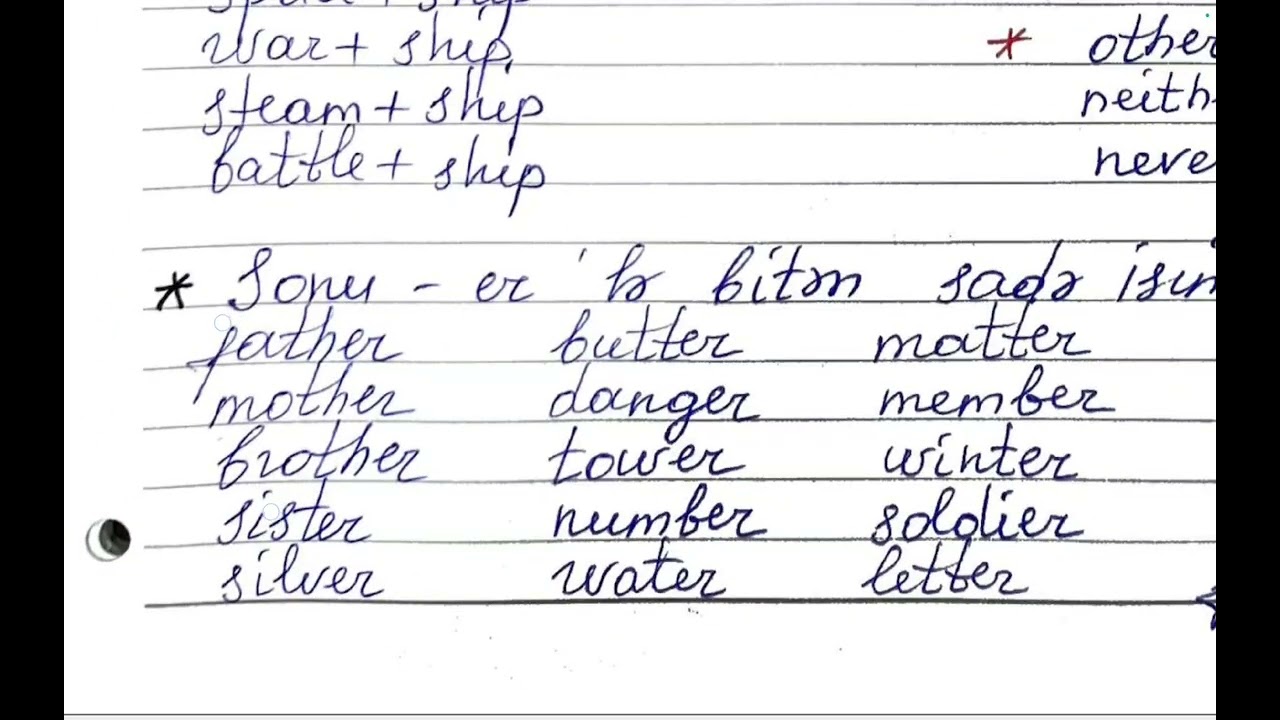 war + ship * other
steam + ship neith
battle + ship neve
* Sonu - er 'lə bitən sadə isim
father butter matter
mother danger member
brother tower winter
sister number soldier
silver water letter